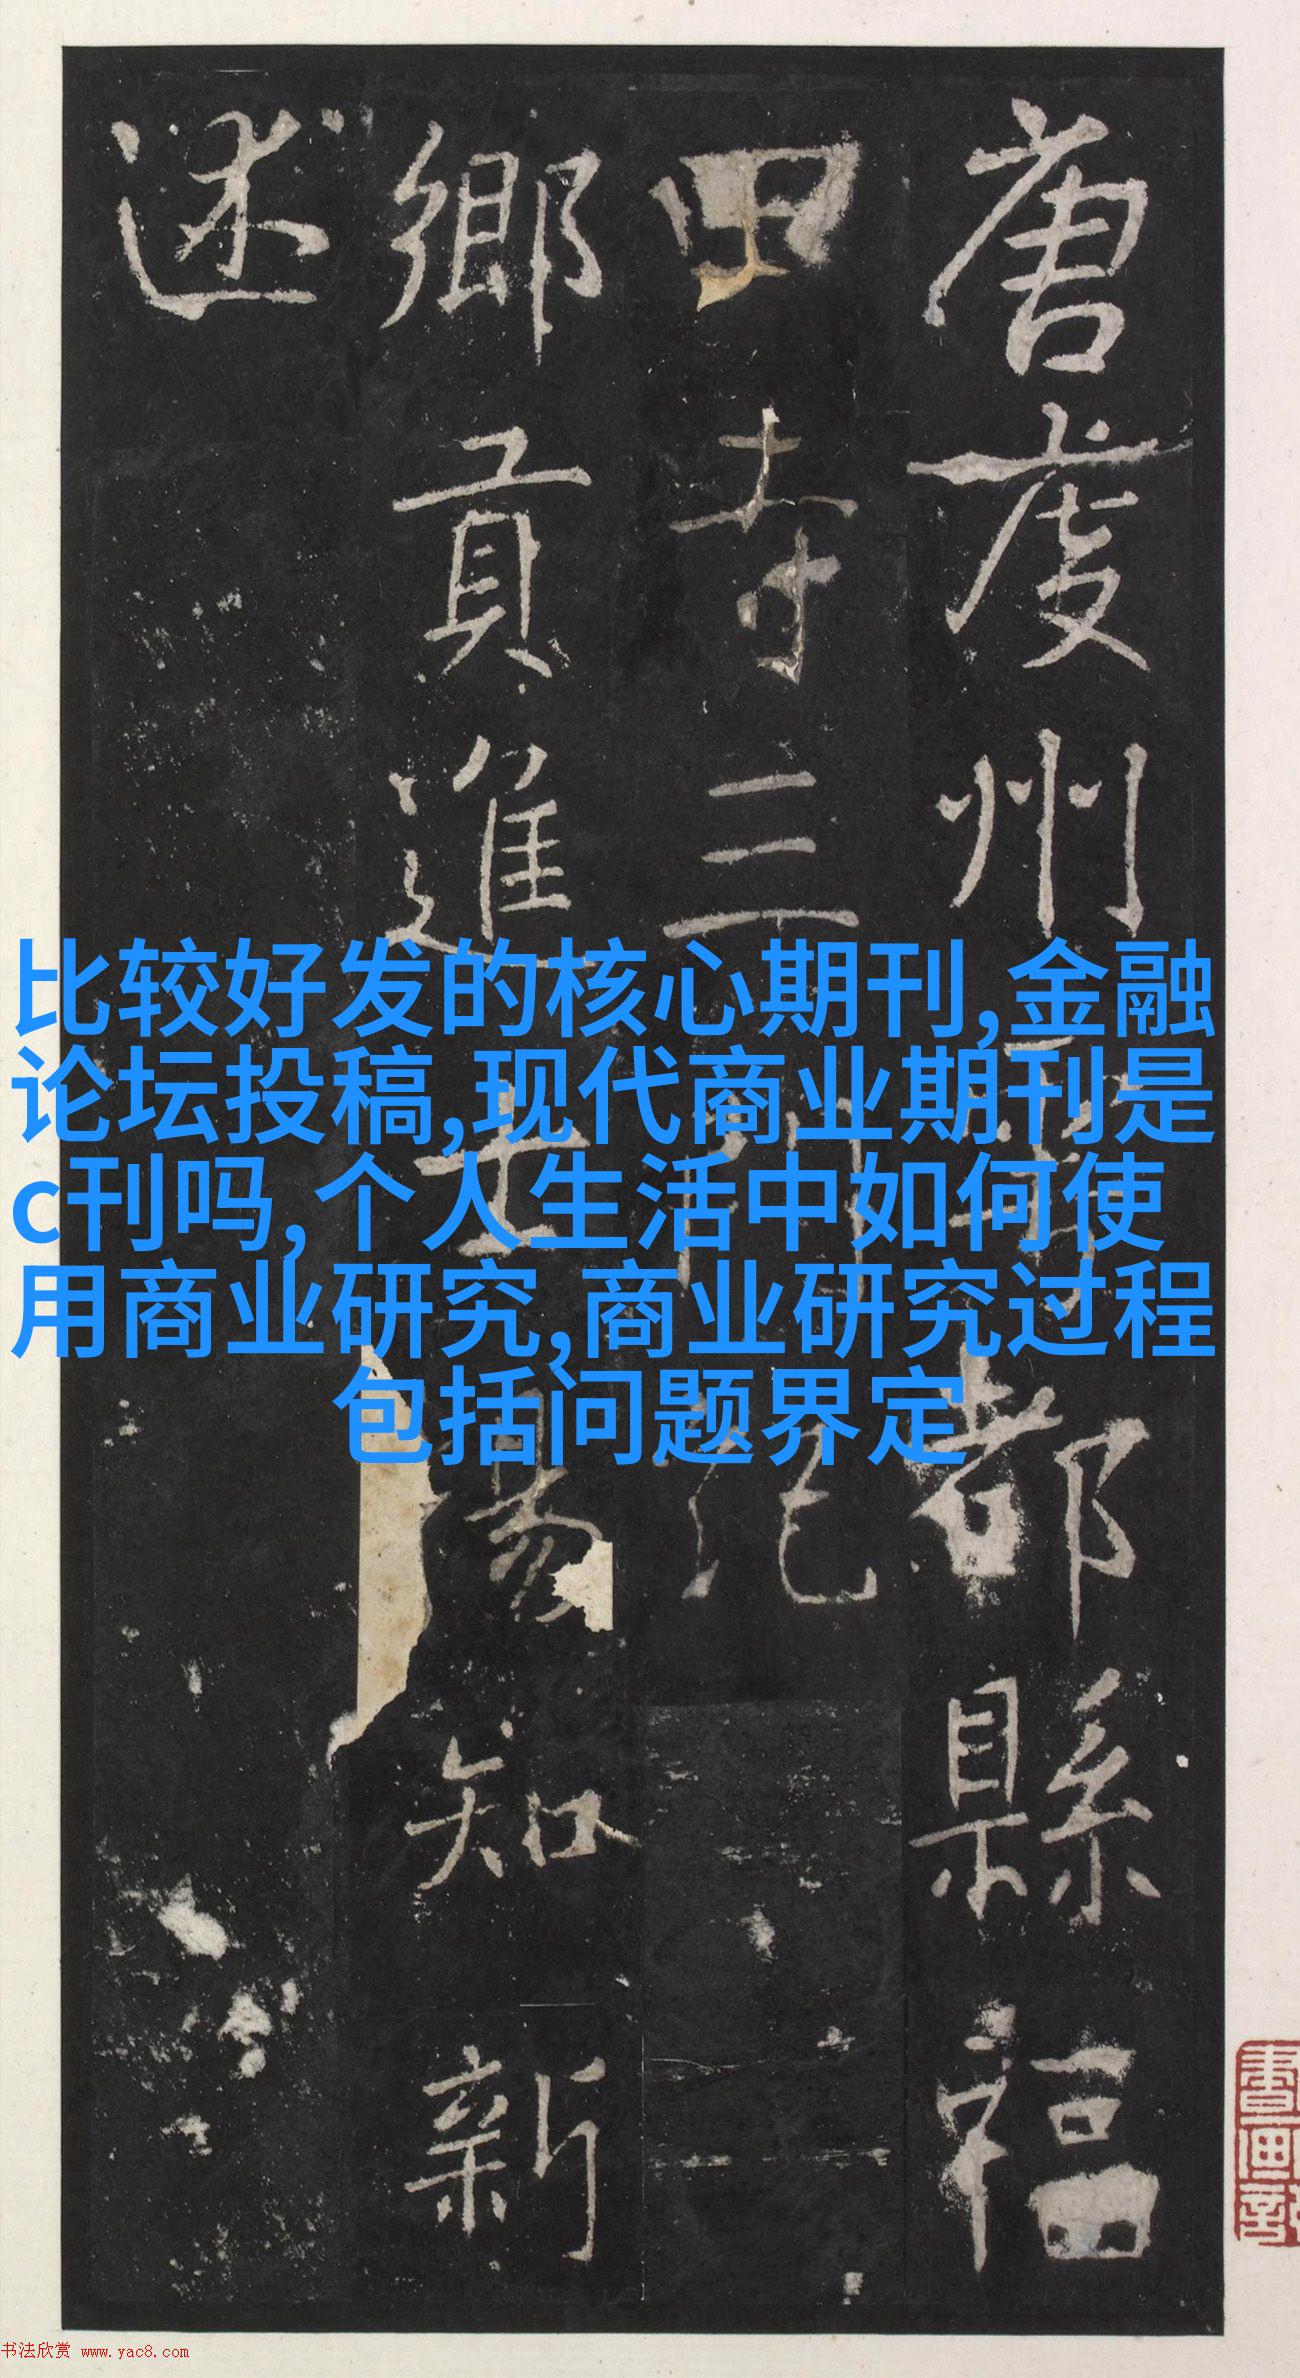 唐虔州雩都縣福
田寺三門記
鄉貢進士易知新
述
比较好发的核心期刊,金融
论坛投稿,现代商业期刊是
c刊吗,个人生活中如何使
用商业研究,商业研究过程
包括问题界定
书法欣赏 www.yac8.com